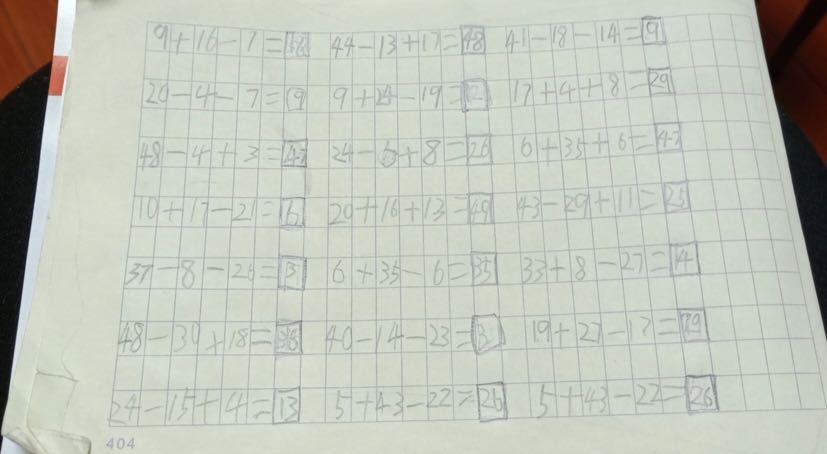 9+16-7=18 44-13+17=48 41-18-14=9
20-4-7=9 9+24-19= 17+4+8=29
48-4+3=47 24-6+8=26 6+35+6=47
10+17-21=6 20+16+13=49 43-29+11=25
37-8-26=3 6+35-6=35 33+8-27=14
48-30+18=36 40-14-23=3 19+27-17=29
24-15+4=13 5+43-22=26 5+43-22=26
404